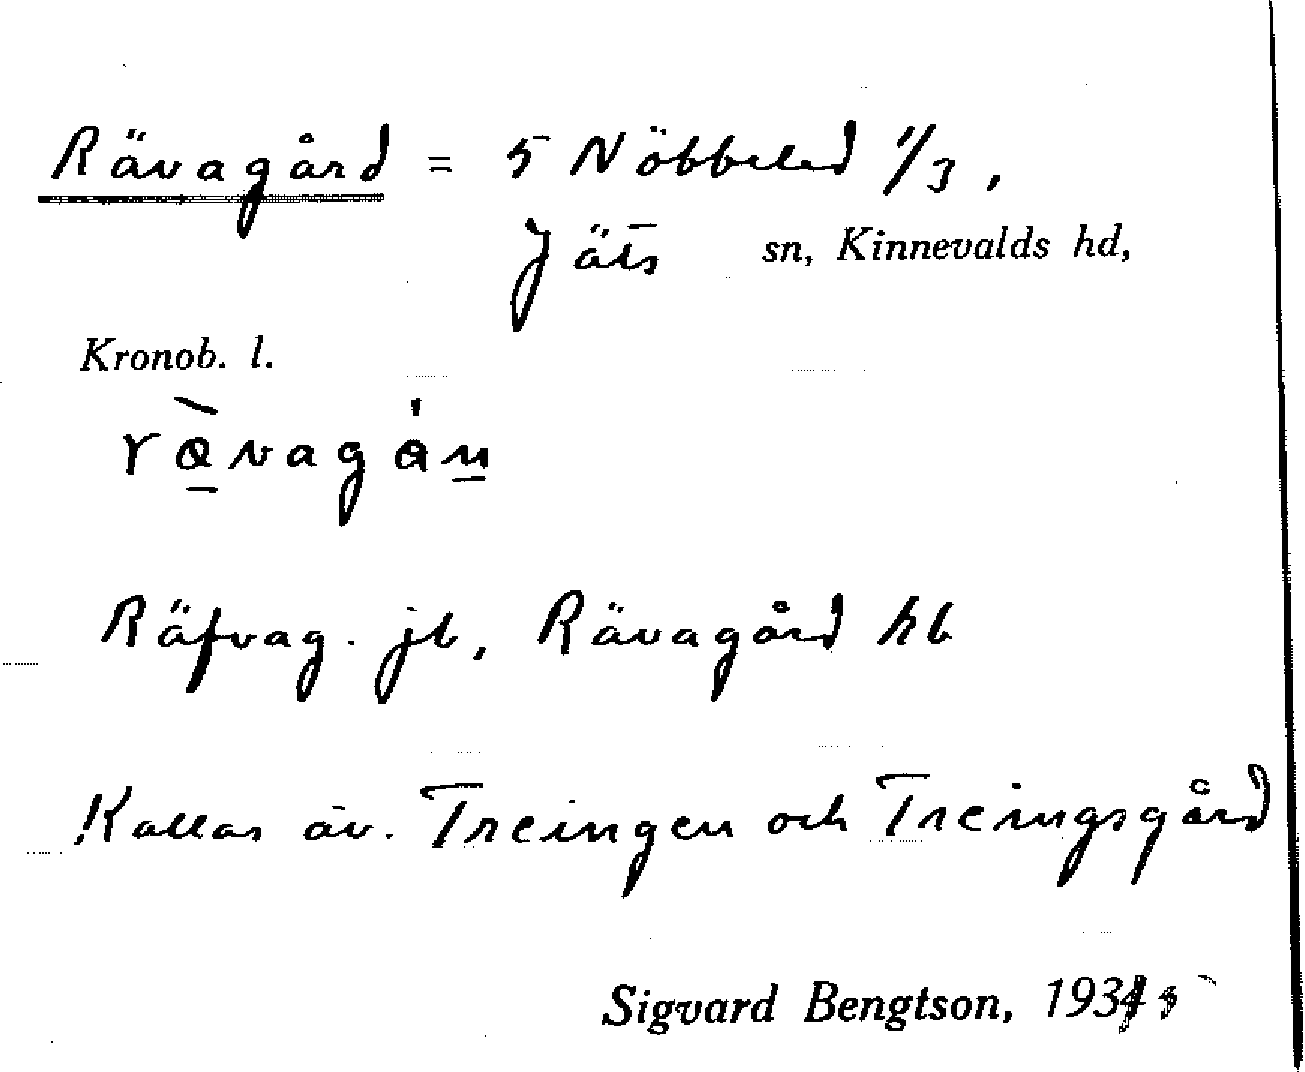 Rävagård = 5 Nöbbeled 1/3,
Jäts sn, Kinnevalds hd,
Kronob. l.
Räfvag. jb, Rävagård hb
Kallas äv. Treingen och Treingsgård
Sigvard Bengtson, 193